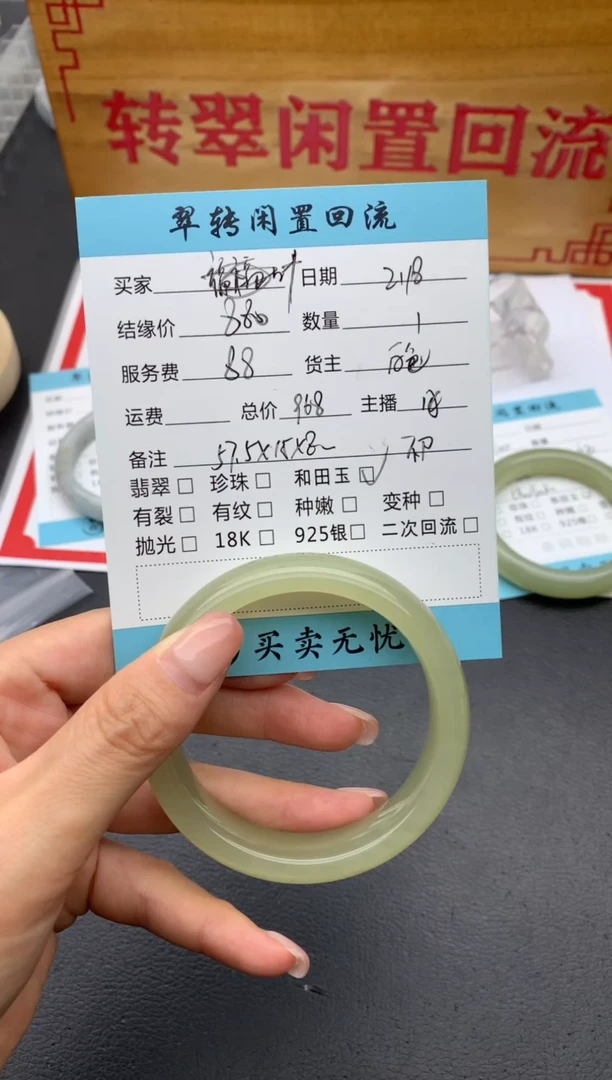 转翠闲置回流
翠转闲置回流
买家 日期 21/8
结缘价 880 数量 1
服务费 88 货主
运费 总价 968 主播
备注 57.5X15X8
翡翠□ 珍珠□ 和田玉☑
有裂□ 有纹□ 种嫩□ 变种□
抛光□ 18K□ 925银□ 二次回流□
买卖无忧